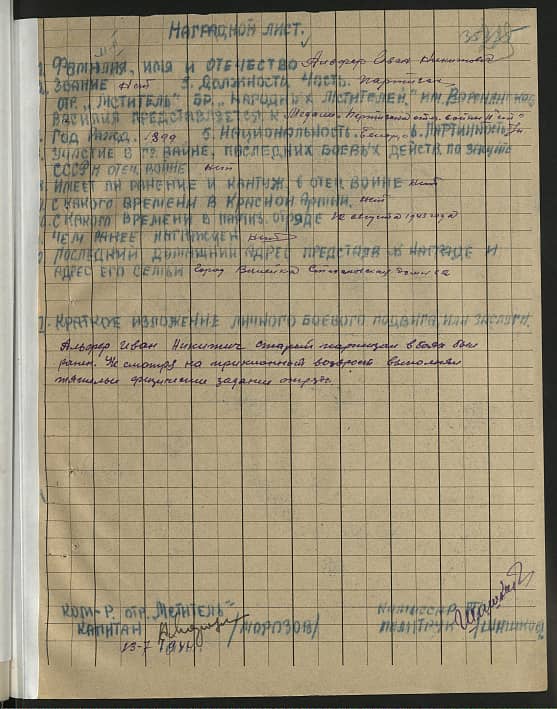 НАГРАДНОЙ ЛИСТ.
1. ФАМИЛИЯ, ИМЯ И ОТЕЧЕСТВО Альфер Иван Никитович
ЗВАНИЕ нет 3. ДОЛЖНОСТЬ, ЧАСТЬ партизан
ОТР. „МСТИТЕЛЬ" БР. „НАРОДНЫХ МСТИТЕЛЕЙ" ИМ. ВОРОНЯНСКОГО
ВАСИЛИЯ ПРЕДСТАВЛЯЕТСЯ К Медали
ГОД РОЖД. 1899 5. НАЦИОНАЛЬНОСТЬ белор. 6. ПАРТИЙНОСТЬ
УЧАСТИЕ В ГР. ВОЙНЕ, ПОСЛЕДНИХ БОЕВЫХ ДЕЙСТ. ПО ЗАЩИТЕ
СССР И ОТЕЧ. ВОЙНЕ нет
ИМЕЕТ ЛИ РАНЕНИЕ И КАНТУЖ. В ОТЕЧ. ВОЙНЕ нет
С КАКОГО ВРЕМЕНИ В КРАСНОЙ АРМИИ. нет
С КАКОГО ВРЕМЕНИ В ПАРТИЗ. ОТРЯДЕ августа 1943 года
ЧЕМ РАНЕЕ НАГРАЖДЕН нет
ПОСЛЕДНИЙ ДОМАШНИЙ АДРЕС ПРЕДСТАВ. К НАГРАДЕ И
АДРЕС ЕГО СЕМЬИ город Вилейка
КРАТКОЕ ИЗЛОЖЕНИЕ ЛИЧНОГО БОЕВОГО ПОДВИГА ИЛИ ЗАСЛУГИ.
Альфер Иван Никитич старый партизан в боях был
ранен. Не смотря на приклонный возврост выполнял
тяжелые физические задания отряда.
КОМ-Р ОТР. „МСТИТЕЛЬ" КОМИССАР
КАПИТАН /МОРОЗОВ/ ПОЛИТРУК
13-7 1944г.